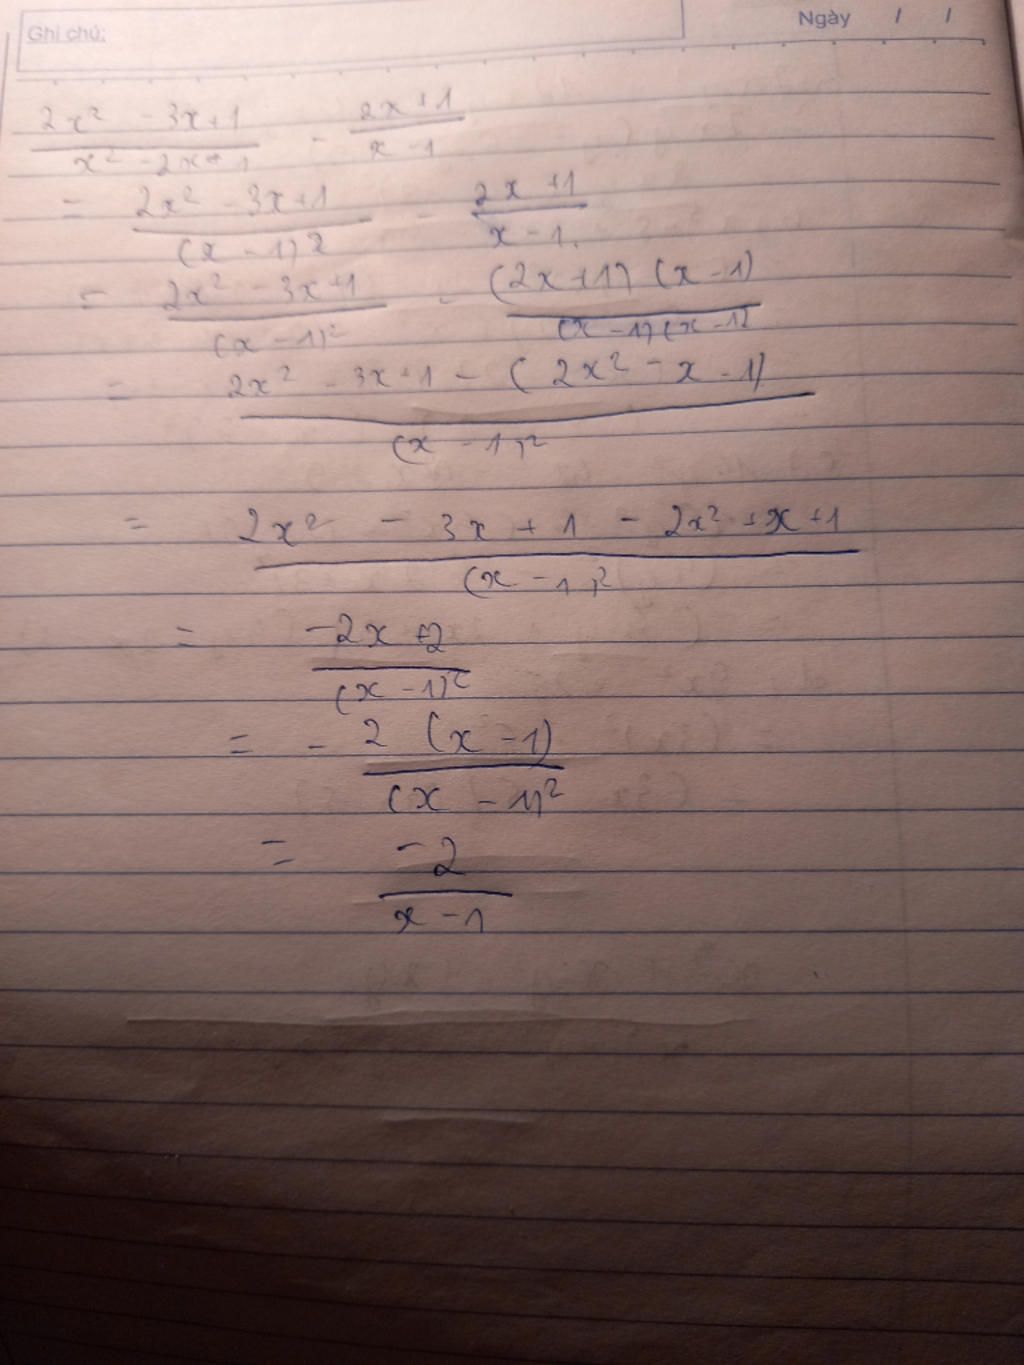 Ghi chú: Ngày / /
2x² - 3x+1 / x² - 2x+1 - 2x+1 / x-1
= 2x² - 3x+1 / (x-1)2 - 2x+1 / x-1.
= 2x² - 3x+1 / (x-1)² - (2x+1)(x-1) / (x-1)(x-1)
= 2x² - 3x+1 - (2x² - x - 1) / (x-1)²
= 2x² - 3x + 1 - 2x² + x + 1 / (x-1)²
= -2x+2 / (x-1)²
= - 2(x-1) / (x-1)²
= -2 / x-1